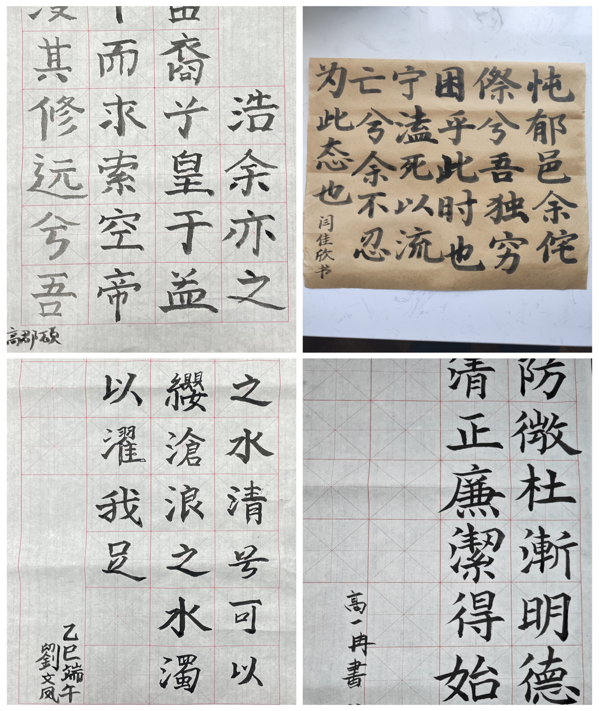 浩余亦之
裔兮皇于益
而求索空帝
其修远兮吾
高郡硕
忳郁邑余侘
傺兮吾独穷
困乎此时也
宁溘死以流
亡兮余不忍
为此态也
闫佳欣书
之水清兮可以
纓滄浪之水濁
以濯我足
乙巳端午
劉文凤
防微杜漸明德
清正廉潔得始
高一冉書